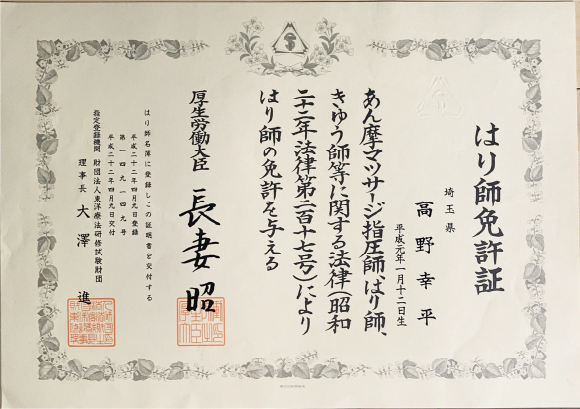 はり師免許証
埼玉県
高野幸平
平成元年一月十二日生
あん摩マツサージ指圧師、はり師、
きゆう師等に関する法律(昭和
二十二年法律第二百十七号)により
はり師の免許を与える
厚生労働大臣 長妻昭
はり師名簿に登録しこの証明書を交付する
平成二十二年四月九日登録
第一四九一四九号
平成二十二年四月九日交付
指定登録機関 財団法人東洋療法研修試験財団
理事長 大澤進